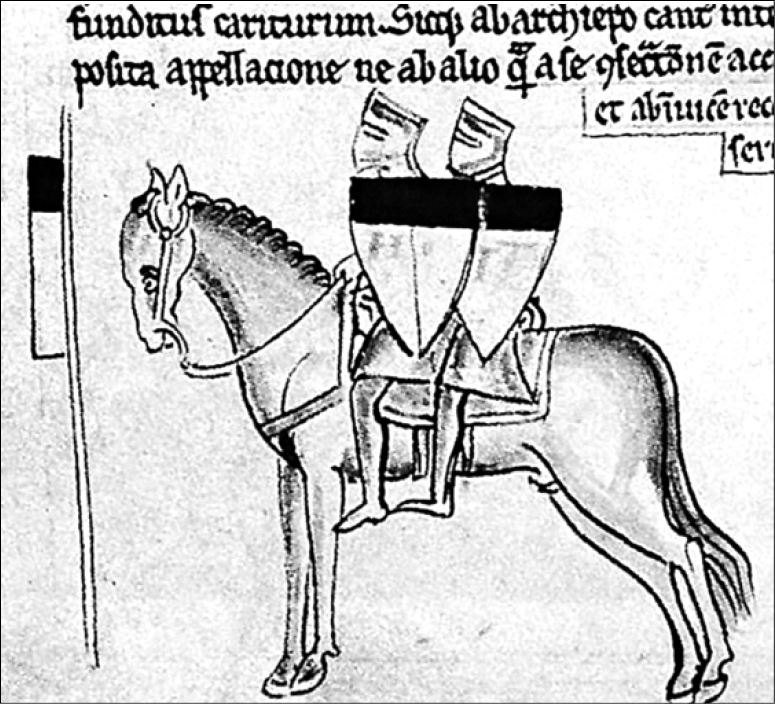 funditus cariturum. Sicq; ab archiepo cant int
posita appellacione ne ab alio a se acc
et ab īuicē rec